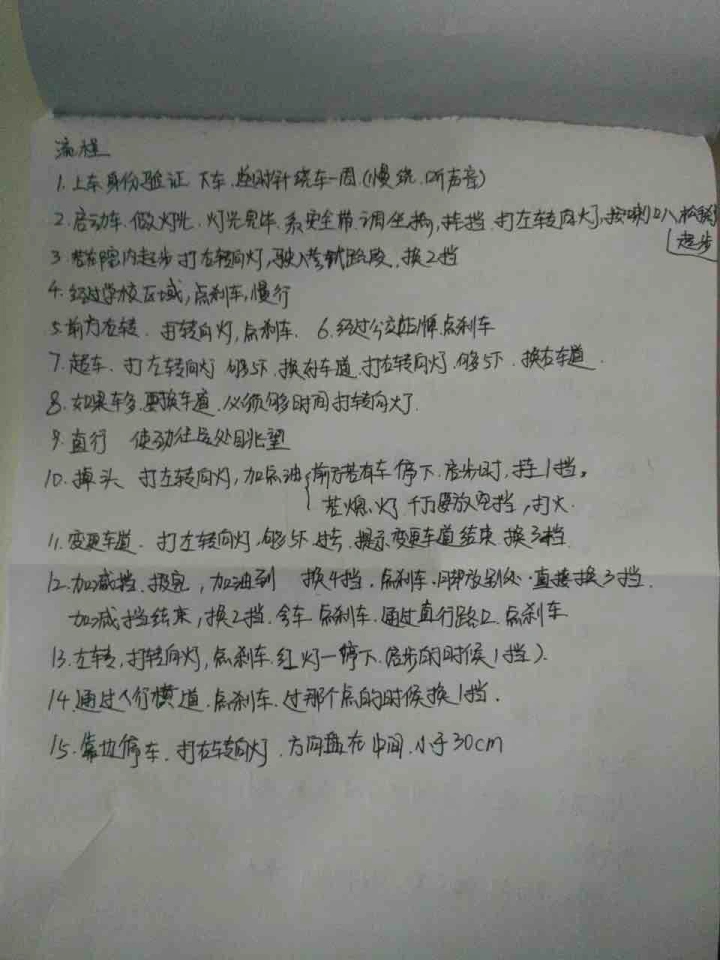 流程
1. 上车身份验证 下车.逆时针绕车一周(慢绕.听声音)
2. 启动车.做灯光.灯光完毕.系安全带.调坐椅,挂挡.打左转向灯,按喇叭八松
起步
3. 若在院内起步打左转向灯,驶入考试路段,换2挡
4. 经过学校区域,点刹车,慢行
5. 前方右转.打转向灯,点刹车. 6. 经过公交站牌点刹车
7. 超车.打左转向灯够5下.换左车道.打右转向灯.够5下.换右车道.
8. 如果车多.要换车道.必须够时间打转向灯.
9. 直行 使劲往远处目眺望
10. 掉头 打左转向灯,加点油{前方若有车停下.启步时,挂1挡。
若熄火灯千万要放空挡,打火.
11. 变更车道.打左转向灯.够5下.过去.提示变更车道结束.换3挡
12. 加减挡.报完,加油到 换4挡.点刹车.脚放别处.直接换3挡.
加减挡结束,换2挡.会车点刹车.通过直行路口.点刹车
13. 左转,打转向灯,点刹车.红灯一停下.启步的时候1挡).
14. 通过人行横道.点刹车.过那个点的时候换1挡.
15. 靠边停车.打右转向灯.方向盘在中间.小于30cm